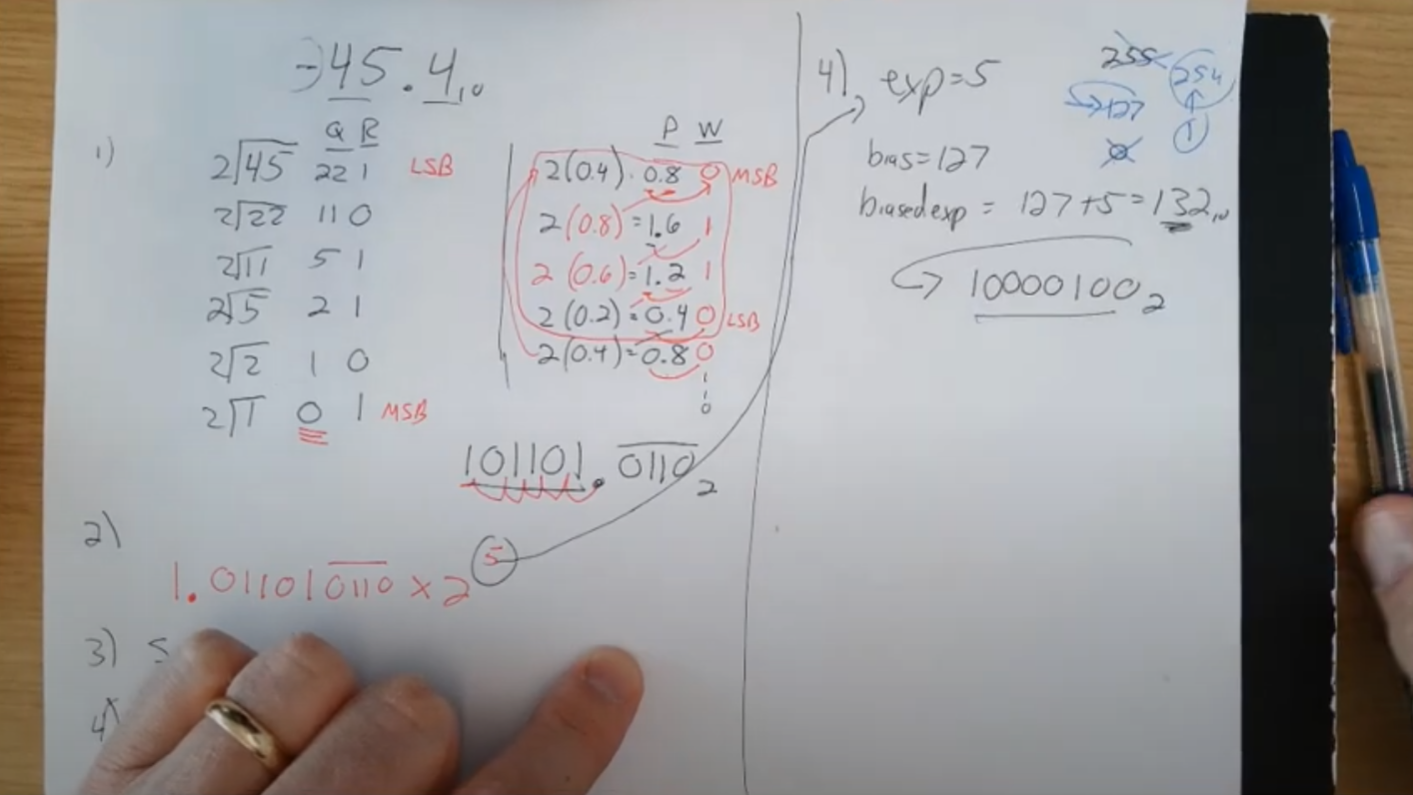 -45.4₁₀
1)
Q R
2√45 22 1 LSB
2√22 11 0
2√11 5 1
2√5 2 1
2√2 1 0
2√1 0 1 MSB
P W
2(0.4) = 0.8 0 MSB
2(0.8) = 1.6 1
2(0.6) = 1.2 1
2(0.2) = 0.4 0 LSB
2(0.4) = 0.8 0
101101.0110₂
2)
1.011010110 × 2⁵
3) S
4)
4) exp=5
bias=127
biased exp = 127+5=132₁₀
10000100₂
255
254
127
1
0